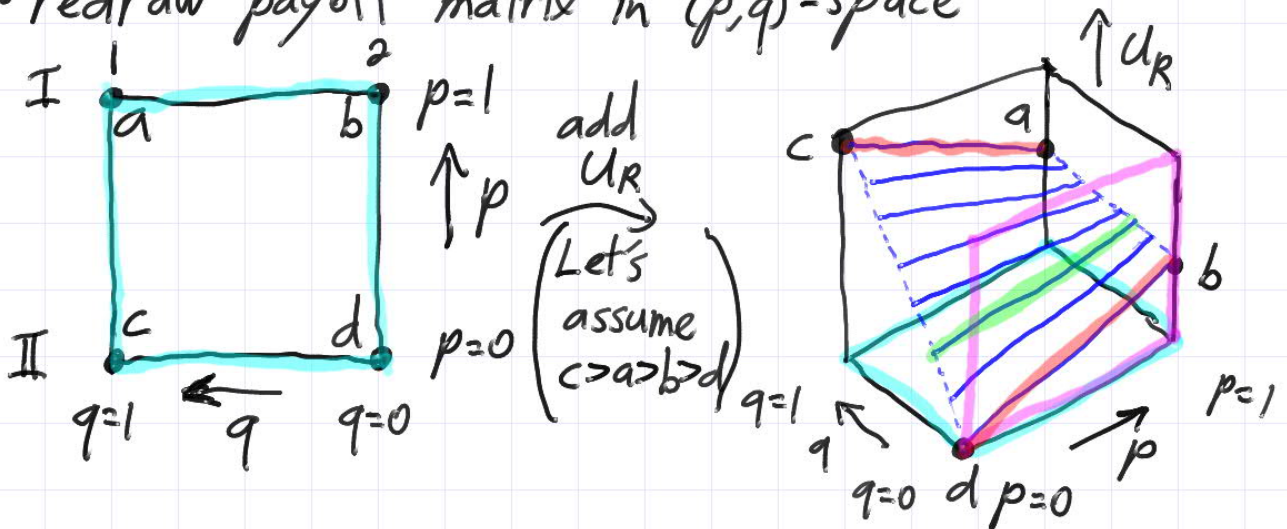 redraw payoff matrix in (p,q)-space
1 2
I a b p=1
p
c d
II p=0
q=1 q q=0
add
UR
(Let's
assume
c>a>b>d)
UR
c a
b
q=1 p=1
q p
q=0 d p=0